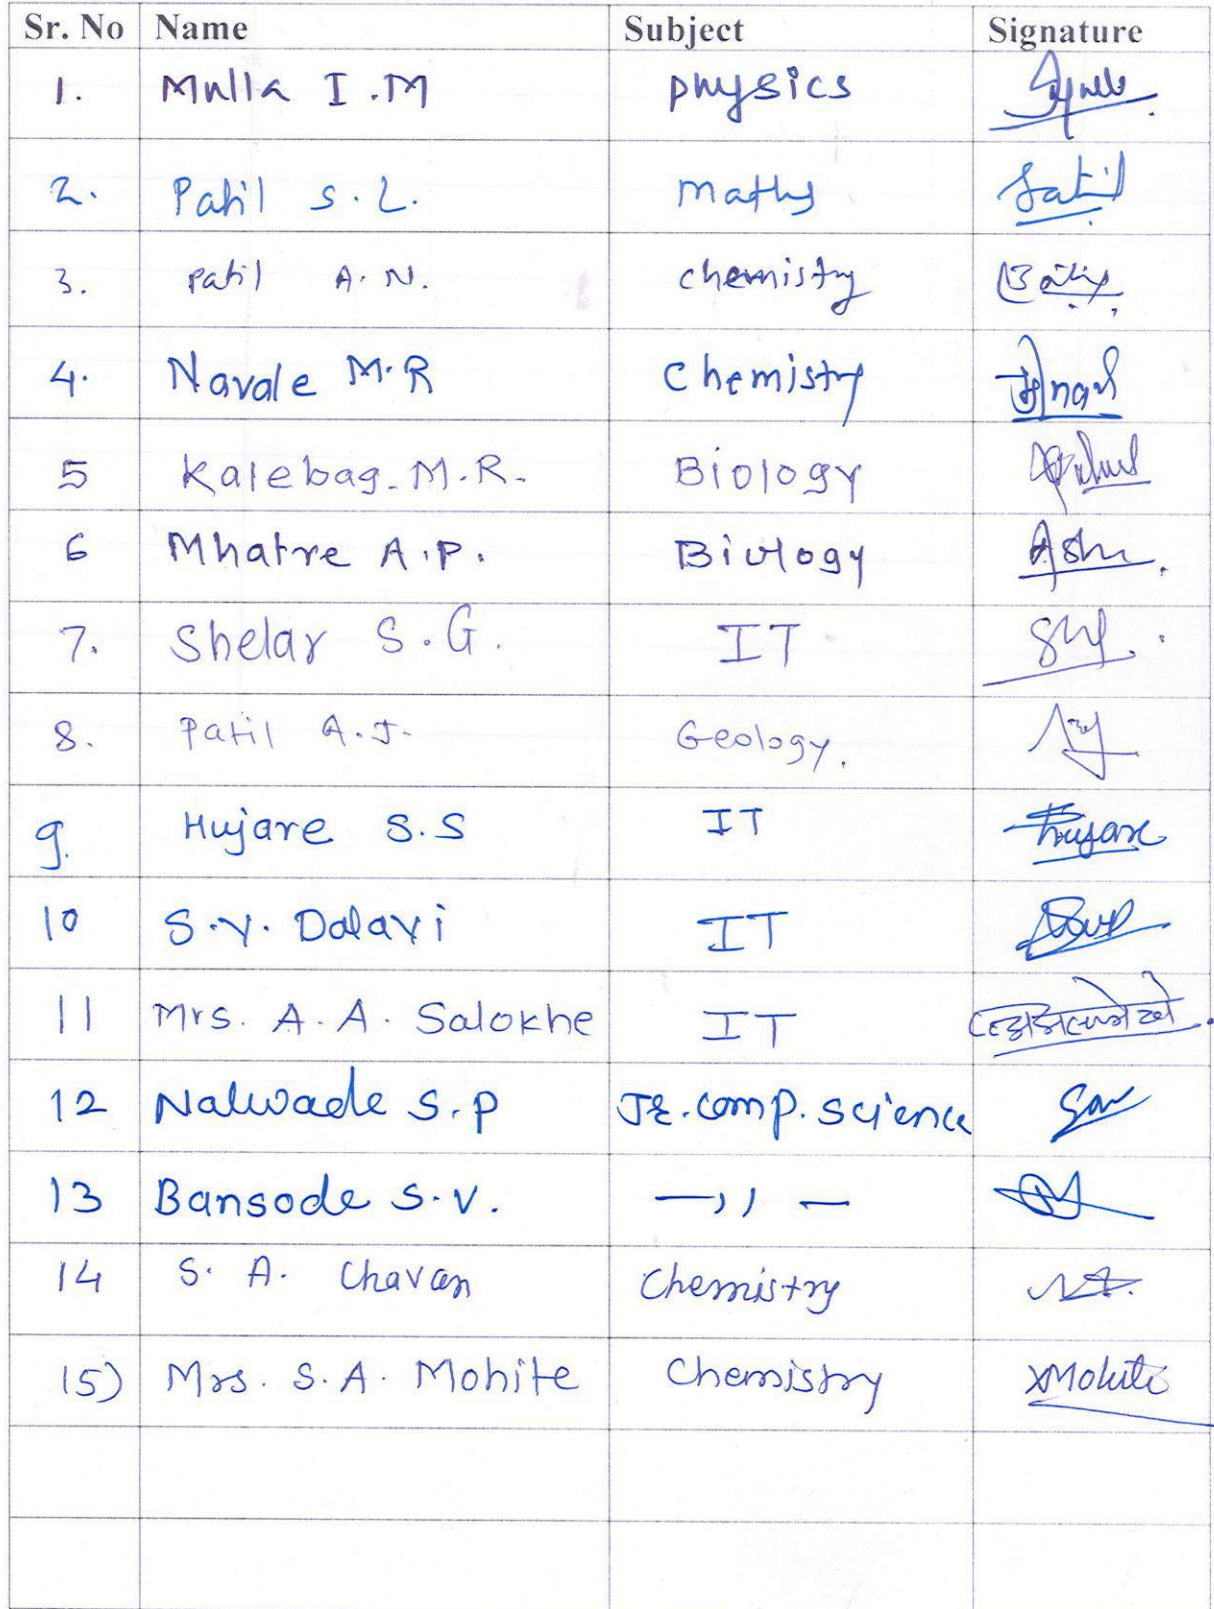 Sr. No Name Subject Signature
1. Mulla I.M physics
2. Patil S.L. Maths
3. patil A.N. chemistry
4. Navale M.R Chemistry
5 Kalebag.M.R. Biology
6 Mhatre A.P. Biology
7. Shelar S.G. IT
8. Patil A.J. Geology.
9. Hujare S.S IT Hujare
10 S.Y. Dalavi IT
11 Mrs. A.A. Salokhe IT
12 Nalwade S.P Jr. comp. science
13 Bansode S.V. —,,—
14 S. A. Chavan Chemistry
15) Mrs. S.A. Mohite Chemistry Mohite